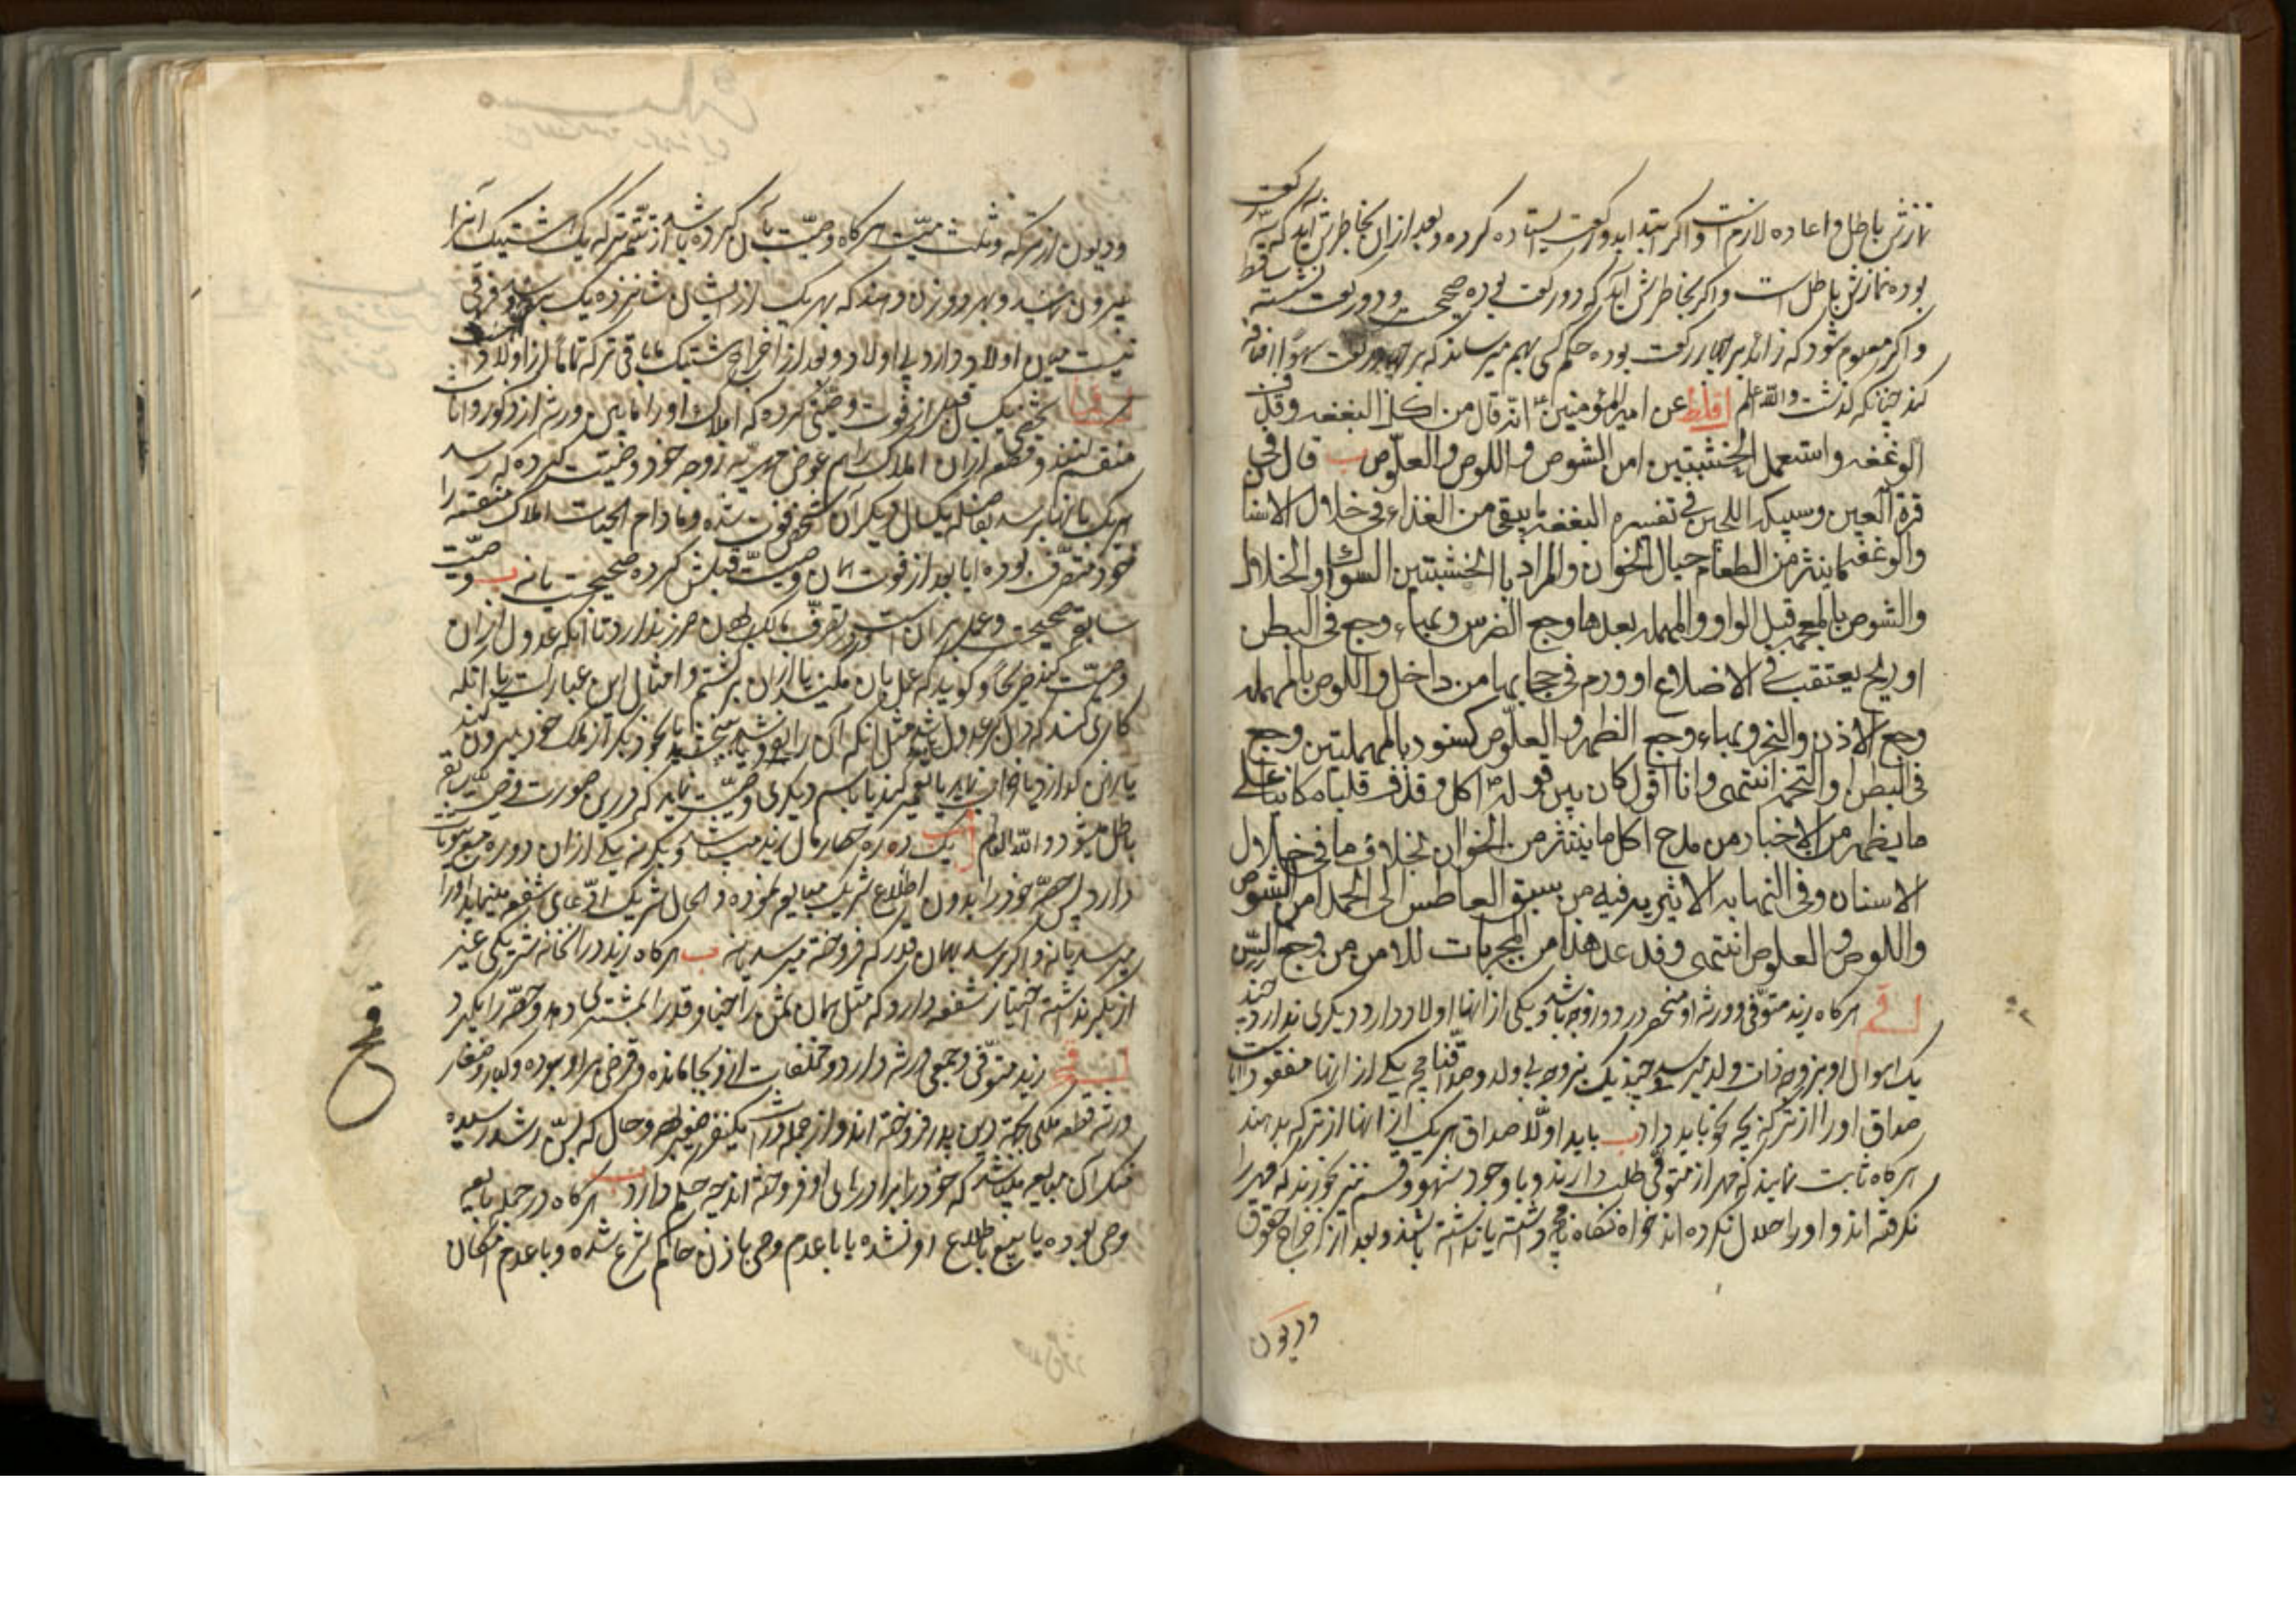 نمازش باطل و اعاده لازمست و اگر ابتدا بدو رکعت ایستاده کرده و بعد از آن بخاطرش آید که سه رکعت
بوده نمازش باطل است و اگر بخاطرش آید که دو رکعت بوده صحیح و دو رکعت نشسته ساقط
و اگر معلوم شود که زائد بر چهار رکعت بوده حکم کسی بهم میرساند که بر چهار رکعت سهوا اضافه
کند چنانکه گذشت والله اعلم عن امیر المؤمنین ع انه قال من اکل البغفه وقذف
الوغفه واستعمل الخشبتین امن الشوص واللوص والعلّوص ب قال فی
قرة العین وسبیکه اللجین فی تفسیره البغفه ما یبقی من الغذاء فی خلال الاسنان
والوغفه ما ینثر من الطعام حیال الخوان والمراد بالخشبتین السواک والخلال
والشوص بالمعجمه قبل الواو والمهمله بعدها وجع الضرس وبماء وجع فی البطن
او ریح یعتقب فی الاضلاع او ورم فی حجابها من داخل واللوص بالمهمله
وجع الاذن والنحر وبماء وجع الظهر والعلّوص کسنور بالمهملتین وجع
فی البطن او التخمه انتهی وانا اقول کان بین قوله ع اکل وقذف قلب مکانی علی
ما یظهر من الاخبار من مدح اکل ما ینتثر من الخوان بخلاف ما فی خلال
الاسنان وفی النهایه الاثیریه فیه من سبق العاطس الی الحمد امن الشوص
واللوص والعلوص انتهی وقد عد هذا من المجربات للامن من وجع السن
هرگاه زید متوفی و ورثه او منحصر در دو زوجه باشد و یکی از آنها اولاد دارد و دیگری ندارد چند
یک اموال او بزوجه ذات ولد میرسد و چند یک بزوجه بی ولد و صداقنامچه یکی از آنها مفقود است
صداق او را از ترکه بچه نحو باید داد ب باید اولا صداق هر یک از آنها از ترکه بدهند
هرگاه ثابت نمایند که مهر از متوفی طلب دارند و با وجود شهود قسم نیز بخورند که مهر را
نگرفته اند و او را حلال نکرده اند خواه نکاه نامچه داشته یا نداشته باشند و بعد از اخراج حقوق
ودیون
ودیون از ترکه و ثلث میت هرگاه وصیت بآن کرده باشد از تتمه ترکه یک هشتیک آنرا
بیرون نمایند و بهر دو زن دهند که بهر یک از ایشان شانزده یک برسد و فرقی
نیست میان اولاد دار و بی اولاد و بعد از اخراج هشتیک مابقی ترکه تماما از اولاد است
شخصی یک سال قبل از فوت وصیتی کرده که املاک او را مابین ورثه از ذکور و اناث
منقسم کنند و قطعه از آن املاک را هم عوض مهریه زوجه خود وصیت کرده که رسد
هر یک بآنها برسد بفاصله یکسال دیگر آن شخص فوت شده و مادام الحیات املاک منقسمه را
خود متصرف بوده آیا بعد از فوت آن وصیت قبلش کرده صحیح است یا نه ب وصیت
سابق صحیحست و عمل بر آن است و تصرف مالک بآن ضرر ندارد تا آنکه عدول از آن
وصیت کند صریحا و گوید که عمل بآن مکنید یا از آن برگشتم و امثال این عبارات یا آنکه
کاری کند که دال بر عدول باشد مثل آنکه آن را بفروشد یا ببخشد یا بنحو دیگر از ملک خود بیرون کند
وصیت نماید که در این صورت وصیت سابق
باطل میشود والله العالم یک ده ره چهار مال زید میباشد و یکی از آن دوره مبیعیات
دارد پس حصه خود را بدون اطلاع شریک مبایعه نموده و الحال شریک ادعای شفعه مینماید او را
میرسد یا نه و اگر برسد بهمان قدر که فروخته میرسد یا نه ب هرگاه زید در آنخانه شریکی غیر
از بکر نداشته اختیار شفعه دارد که مثل همان ثمن را جنسا و قدرا بمشتری دهد و حصه را بگیرد
زید متوفی و جمعی ورثه دارد و مخلفات از او بجا مانده و قرض بر او بوده و کبار و صغار
ورثه قطعه ملکی بجهة دین پدر فروخته اند و از جمله ورثه یکنفر صغیر بوده و حال که بسن رشد رسیده
منکر آن مبایعه میباشد که خود برادران او فروخته اند چه حکم دارد ب هرگاه در جمله بایعه
وصی بوده یا بیع باطلاع او نشده یا با عدم وصی باذن حاکم شرع شده و با عدم امکان